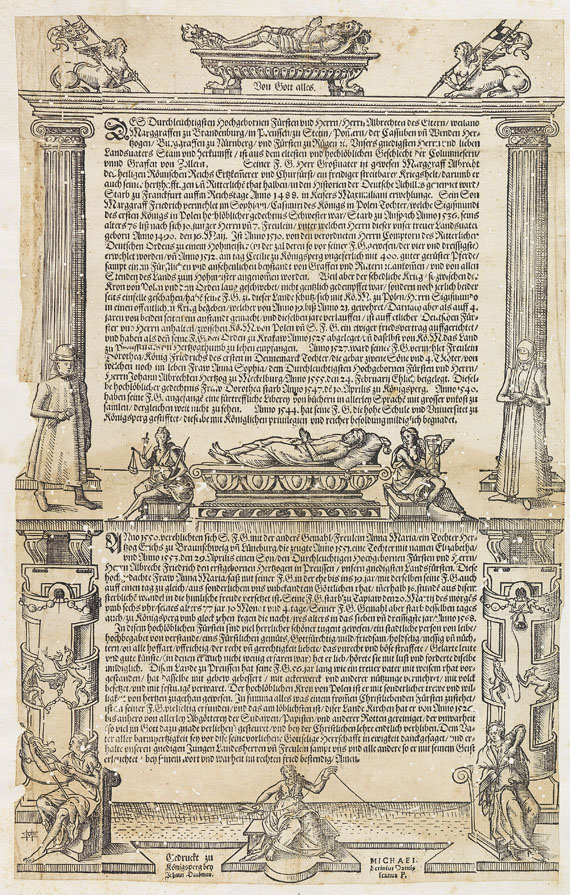 Von Gott alles.
DES Durchleuchtigsten Hochgebornen Fürsten vnd Herrn/ Herrn Albrechten des Eltern/ weiland
Marggraffen zu Brandenburg/ in Preussen/ zu Stetin/ Pomern/ der Cassuben vñ Wenden Her-
tzogen/ Burggraffen zu Nürnberg/ vnd Fürsten zu Rügen ꝛc. Vnsers gnedigsten Herrn vnd lieben
Landsuaters Stam vnd herkunfft/ ist aus dem eltesten vnd hochlöblichen Geschlecht der Columneser/
vnd Graffen von Zollern. Seiner F. G. Herr Großuater ist gewesen Marggraff Albrecht
des heiligen Römischen Reichs Ertzkämerer vnd Churfürst/ ein freidiger streitbarer Kriegsheld/ darumb er
auch seine
Starb zu Franckfurt auffm Reichstage Anno 1486. in Keisers Maximiliani erwehlunge. Sein Son
Marggraff Fridrich vermehlet im Sophiam/ Casimiri des Königs in Polen Tochter/ welche Sigismundi
des ersten Königs in Polen hochlöblicher gedechtnis Schwester war/ Starb zu Anspach Anno 1536. seines
alters 76
geborn Anno 1490. den 16. Maij. Ist Anno 1510. von den verordneten Herrn Compten des Ritterlichen
Deutschen Ordens zu einem Hohmeister
erwehlet worden/ vñ Anno 1512. am tag Cecilie zu Königsperg ungefehrlich mit 400. guter gerüster Pferde/
sampt einem Fürstlichen vnd ansehenlichen beystand von Graffen vnd Rittern ankomen/ vnd von allen
Stenden des Lands zum Hohmeister angenomen worden. Weil aber der schedliche Krieg/ so zwischen der
Kron von Polen vnd dem Orden lang geschwebet/ nicht gentzlich gedempffet war/ sondern noch zerlich beider
seits einfelle geschahen/ hat seine F. G. zu dieser Lande schutz sich mit Kö. M. zu Polen/ Herrn Sigismund
in einen offentlichen Krieg begeben/ welcher von Anno 19. biß Anno 21. gewehret/ Darnach aber als auff 4.
jaren von beiden seiten ein anstand gemacht/ vnd dieselben jare verlauffen/ ist auff etlicher
vnd Herrn anhalten/ zwischen Kö. M. von Polen vñ S. F. G. ein ewiger friedsvertrag auffgerichtet/
vnd haben als deñ seine F. G. den Orden zu Krakaw Anno 1525 abgelegt/ vñ daselbst von Kö. M. das Land
zu Preussen zum Lehen zu empfangen. Anno 1527. ward seiner F. G. vermehlet Frewlein
Dorothea/ König Friedrichs des ersten in Dennemarck Tochter/ die gebar jhrem 2 Söne vnd 4. Töchter/ von
welchen noch im leben Fraw Anna Sophia/ dem Durchleuchtigsten Hochgebornen Fürsten vnd Herrn/
Herrn Johann Albrechten Hertzog zu Meckelburg Anno 1555. den 24. Februarij Ehlich beygelegt. Diese
hochlöblicher gedechtnus Fraw Dorothea starb Anno 1547. de 10. Aprilis zu Königsperg. Anno 1540.
haben seine F. G. angefangē eine fürtreffliche Liberey von büchern in allerley Sprachē mit grosser unkost zu
samlen/ dergleichen weit nicht zu sehen. Anno 1544. hat seine F. G. die hohe Schule vnd Vniversitet zu
Königsperg gestifftet/ dieselbe mit Königlichen priuilegien vnd reicher besoldung mildiglich begnadet.
ANno 1550. verehlichten sich S. F. G. mit der ander Gemahl Frewlein Anna Maria/ ein Tochter Her-
tzog Erichs zu Braunschweig vñ Lüneburg/ die zeugte Anno 1551. eine Tochter mit namen Elizabetha/
vnd Anno 1553. den 29. Aprilis einen Son/ den Durchleuchtigsten Hochgebornen Fürsten vnd Herrn/
Herrn Albrecht Friedrich den erstgebornen Hertzogen in Preussen/ vnsern gnedigsten Landsfürsten. Diese
hochgedachte Fraw Anna Maria/ saß mit seiner F. G. in der ehe bis ins 19. jar/ mit derselben seine F. G. auch
auff einen tag zu gleich/ aus sonderlichem vns unbekandten Göttlichen that/ innerhalb 16. stunde aus dieser
sterbliche wandel in die himlische freude versetzet ist. Seine F. G. starb zu Tapiaw den 20. Martij des morgens
vmb sechs vhr/ seines alters 77 jar 10 Monat vnd 4. tage/ Seiner F. G. Gemahl aber starb desselben tages
auch/ zu Königsperg vmb glock zehen kegen die nacht/ jres alters in das sieben vñ dreissigste jar/ Anno 1568.
In disem hochlöblichen Fürsten sind viel herrlicher schöne tugent gewesen/ ein stadtliche person von leibe/
hochbegabet von verstande eines Fürstlichen gemüts/ Gottfürchtig/ mild/ friedsam/ holdselig/ messig vñ nüch-
tern/ on alle hoffart/ offrichtig/ der recht vñ gerechtigkeit liebete/ das vnrecht vnd böse straffete/ Gelarte leute
vnd gute künste/ (in denen er auch nicht wenig erfaren war) het er lieb/ hörete sie mit lust vnd fordert dieselbe
mildiglich. Dem Land zu Preussen hat seine F. G. 58. jar lang wie ein trewer vater mit weisem rhat vor-
gestanden/ hat dasselbe mit gebew gebessert/ mit ackerwerck vnd anderer nützunge vermehrt/ mit volck
besetzet/ vnd mit festungē verwaret. Der hochlöblichen Kron von Polen ist er mit sonderlicher trewe vnd wil-
ligkeit von hertzen zugethan gewesen. In summa alles was einem fromen Christliebenden Fürsten zustehet/
ist bey seiner F. G. vielfeltig erfunden/ vnd das am löblichsten ist/ diser Lande Kirchen hat er von Anno 1526.
bis anhero von allerley Abgötterey der Sudawen/ Papisten/ vnd anderer Rotten gereiniget/ der unwarheit
(so viel jm Gott dazu gnade verliehen) gesteuret/ vnd bey der Christlichen lehre endlich verblieben. Dem Va-
ter aller barmhertzigkeit sey vor dise seine vorliehene Gottselige Herrschafft in ewigkeit danckgesaget/ vnd er-
halte vnsern gnedigen Jungen Landesherren vñ Frewlein sampt vns vnd alle andere so er mit seinem Geist
erleuchtet/ bey seinem wort vnd warheit im rechten fried bestendig/ Amen.
Gedruckt zu
Königsperg bey
Johann Daubman.
MICHAEL